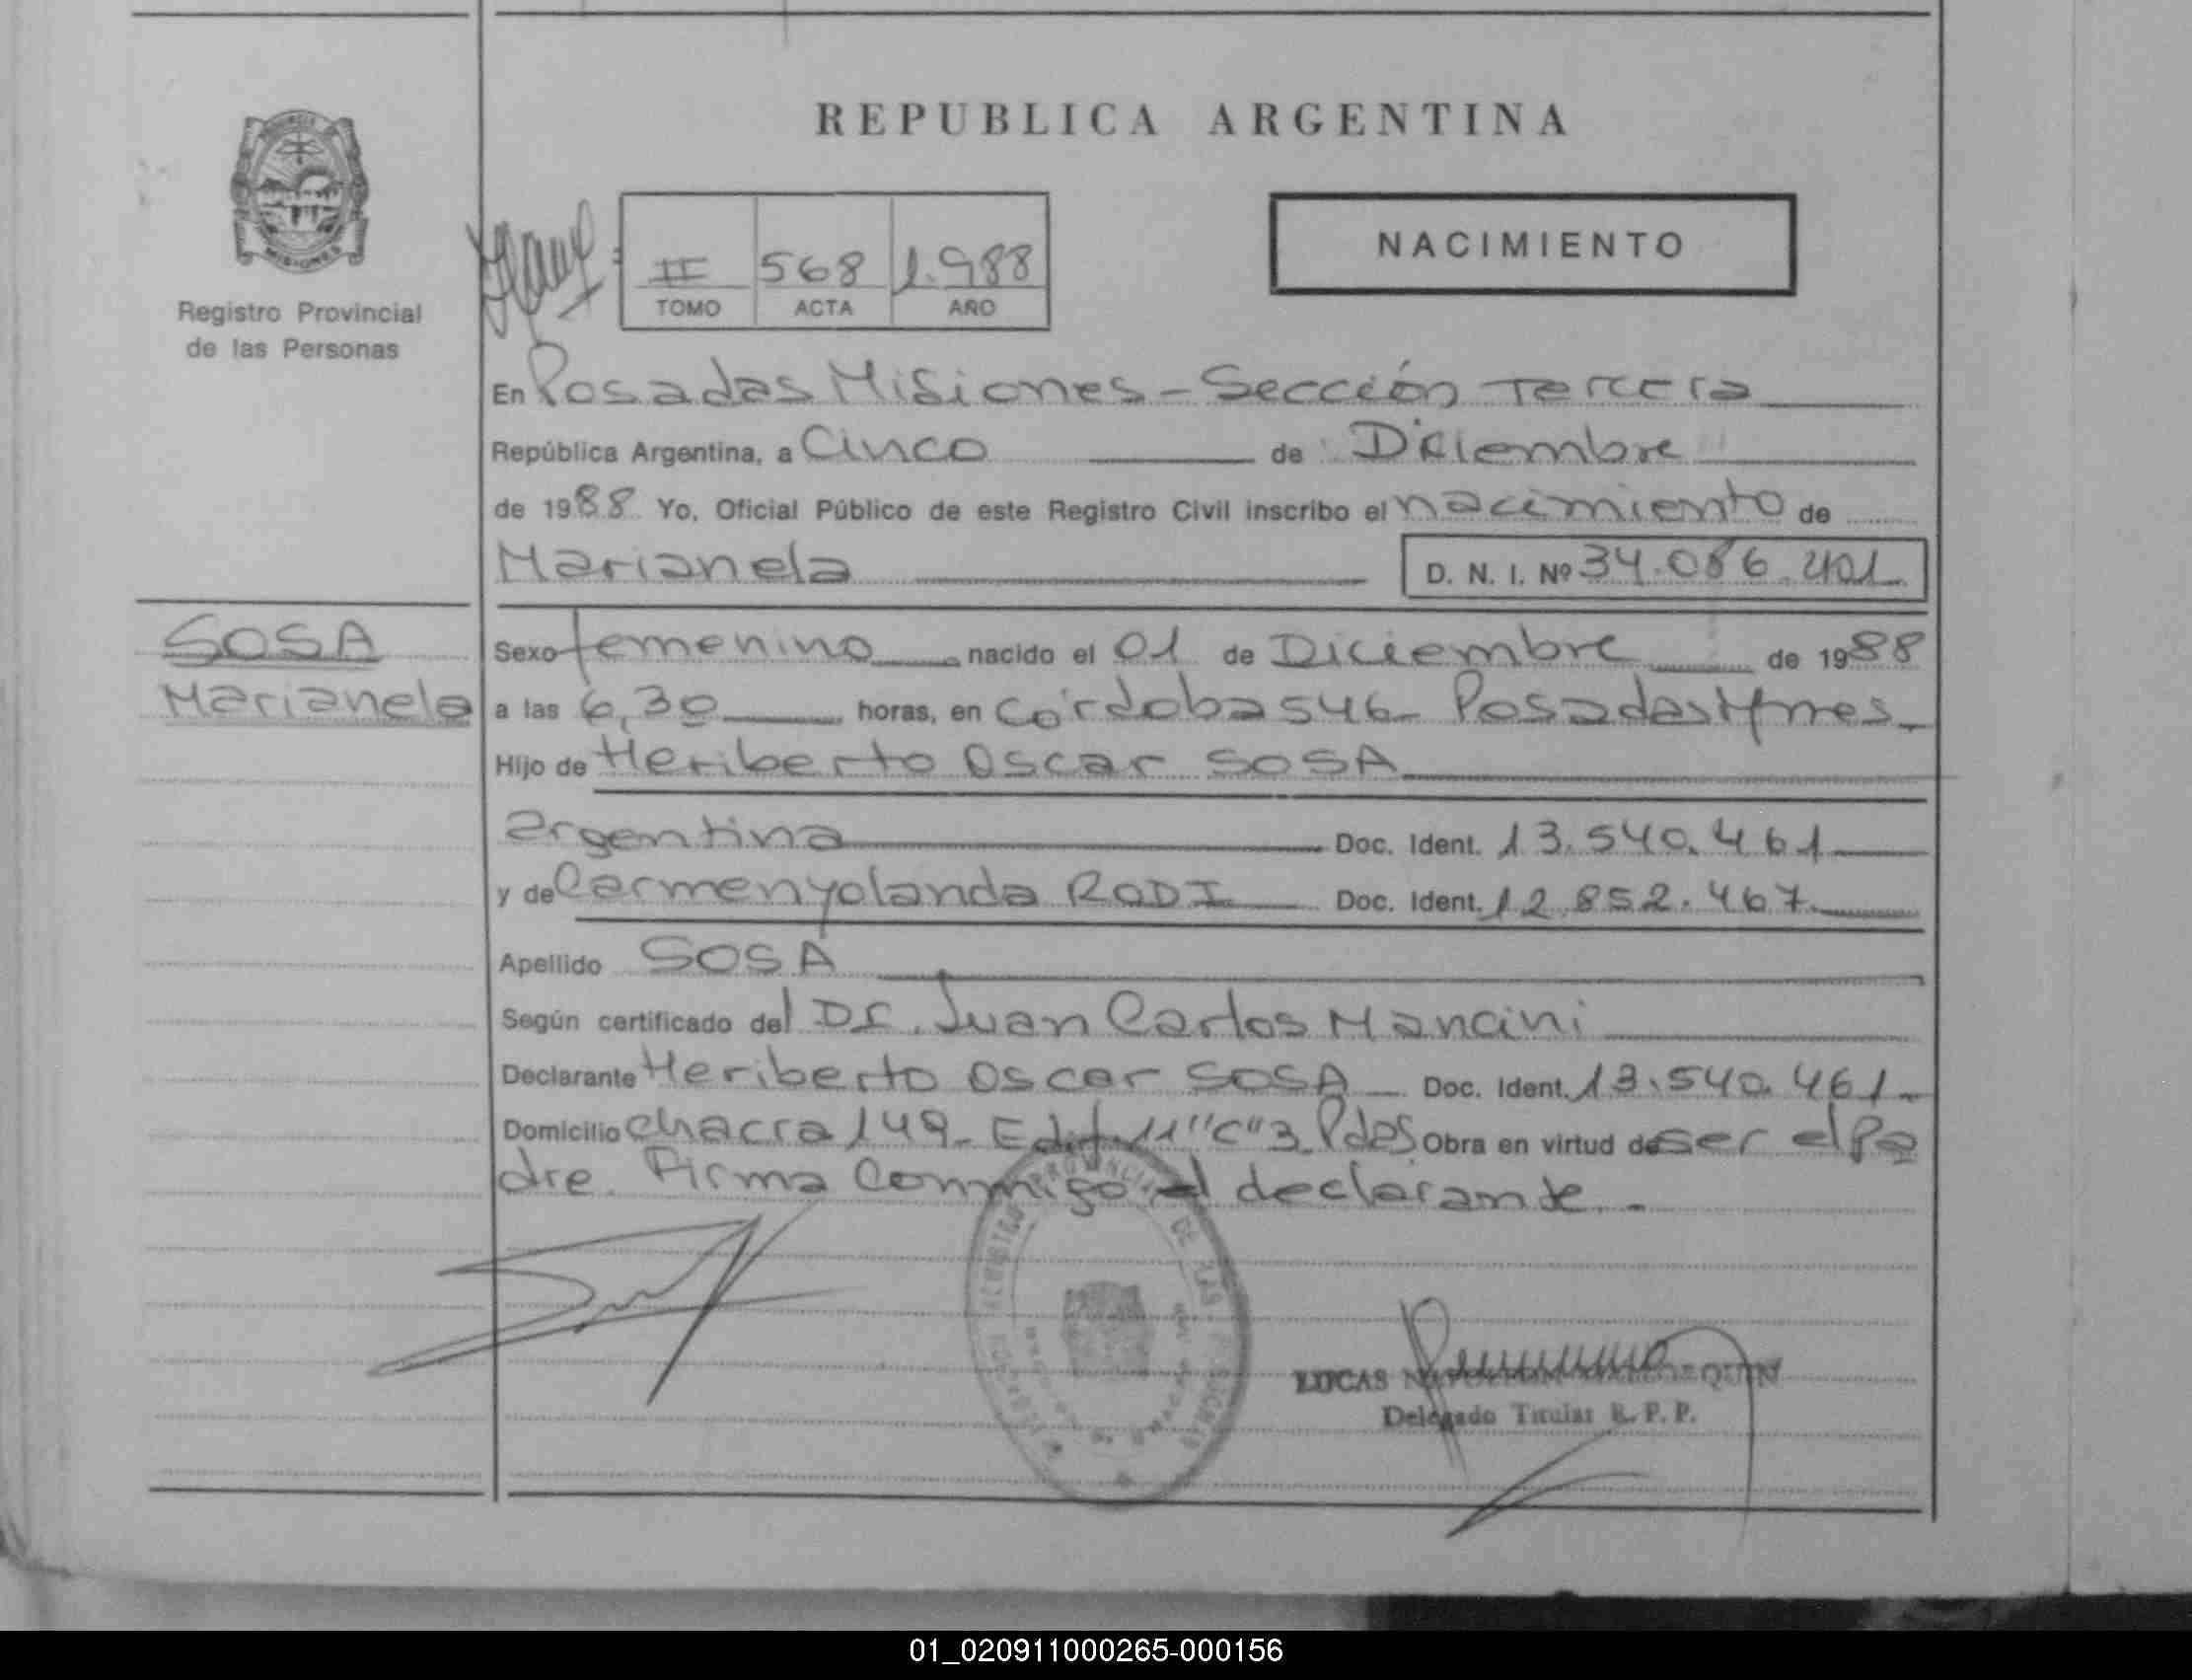 REPUBLICA ARGENTINA
PROVINCIA
MISIONES
Registro Provincial
de las Personas
II 568 1.988
TOMO ACTA AÑO
NACIMIENTO
En Posadas Misiones - Sección Tercera
República Argentina, a Cinco de Diciembre
de 1988 Yo, Oficial Público de este Registro Civil inscribo el nacimiento de
Marianela D. N. I. Nº 34.086.401
SOSA
Marianela
Sexo femenino nacido el 01 de Diciembre de 1988
a las 6,30 horas, en Córdoba 546 - Posadas Mnes.
Hijo de Heriberto Oscar SOSA
argentina Doc. Ident. 13.540.461
y de Carmen Yolanda RODI Doc. Ident. 12.852.467
Apellido SOSA
Según certificado del Dr. Juan Carlos Mancini
Declarante Heriberto Oscar SOSA Doc. Ident. 13.540.461
Domicilio Chacra 149 - Edif. 11 "C" 3 Pdas Obra en virtud de ser el Pa
dre. Firma Conmigo el declarante.
REGISTRO PROVINCIAL DE LAS PERSONAS
LUCAS
Delegado Titular R. P. P.
01_020911000265-000156